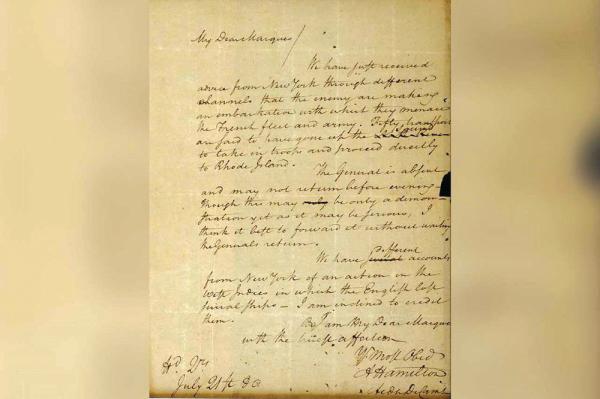 My Dear Marquis
We have just received
advice from New York through different
channels that the enemy are making
an embarkation with which they menace
the French fleet and army. Fifty transports
are said to have gone up the Sound
to take in troops and proceed directly
to Rhode Island.
The General is absent
and may not return before evening.
Though this may only be only a demon-
stration yet as it may be serious, I
think it best to forward it without waiting
the Generals return.
different
We have several accounts
from New York of an action in the
West Indies in which the English lost
several ships – I am inclined to credit
them.
I am My Dear Marquis
with the truest affection
Yr Most Obed
A Hamilton
Aide De Camp
Hd. Qrs
July 21st 80